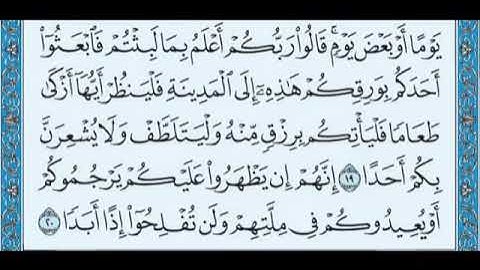 يَوْمًا أَوْ بَعْضَ يَوْمٍ ۚ قَالُوا۟ رَبُّكُمْ أَعْلَمُ بِمَا لَبِثْتُمْ فَٱبْعَثُوٓا۟
أَحَدَكُم بِوَرِقِكُمْ هَٰذِهِۦٓ إِلَى ٱلْمَدِينَةِ فَلْيَنظُرْ أَيُّهَآ أَزْكَىٰ
طَعَامًا فَلْيَأْتِكُم بِرِزْقٍ مِّنْهُ وَلْيَتَلَطَّفْ وَلَا يُشْعِرَنَّ
بِكُمْ أَحَدًا ۝١٩ إِنَّهُمْ إِن يَظْهَرُوا۟ عَلَيْكُمْ يَرْجُمُوكُمْ
أَوْ يُعِيدُوكُمْ فِى مِلَّتِهِمْ وَلَن تُفْلِحُوٓا۟ إِذًا أَبَدًا ۝٢٠